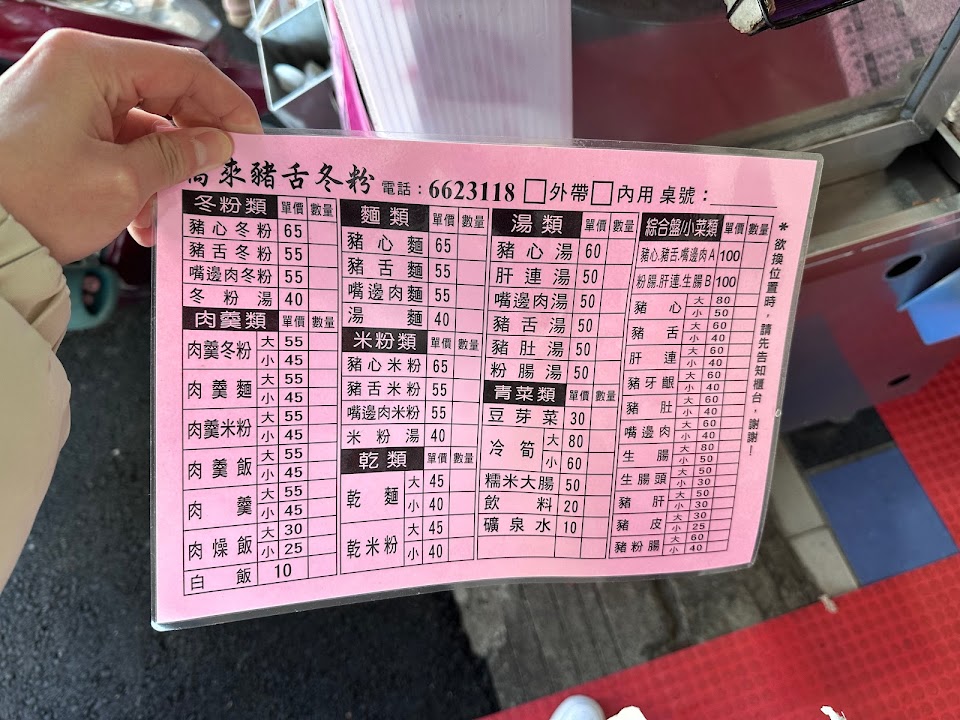 來豬舌冬粉 電話：6623118 □外帶□內用 桌號：
冬粉類 單價 數量
豬心冬粉 65
豬舌冬粉 55
嘴邊肉冬粉 55
冬粉湯 40
肉羹類 單價 數量
肉羹冬粉 大 55
小 45
肉羹麵 大 55
小 45
肉羹米粉 大 55
小 45
肉羹飯 大 55
小 45
肉羹 大 55
小 45
肉燥飯 大 30
小 25
白飯 10
麵類 單價 數量
豬心麵 65
豬舌麵 55
嘴邊肉麵 55
湯麵 40
米粉類 單價 數量
豬心米粉 65
豬舌米粉 55
嘴邊肉米粉 55
米粉湯 40
乾類 單價 數量
乾麵 大 45
小 40
乾米粉 大 45
小 40
湯類 單價 數量
豬心湯 60
肝連湯 50
嘴邊肉湯 50
豬舌湯 50
豬肚湯 50
粉腸湯 50
青菜類 單價 數量
豆芽菜 30
冷筍 大 80
小 60
糯米大腸 50
飲料 20
礦泉水 10
綜合盤/小菜類 單價 數量
豬心.豬舌.嘴邊肉A 100
粉腸.肝連.生腸B 100
豬心 大 80
小 50
豬舌 大 60
小 40
肝連 大 60
小 40
豬牙齦 大 60
小 40
豬肚 大 60
小 40
嘴邊肉 大 60
小 40
生腸 大 80
小 50
生腸頭 大 50
小 30
豬肝 大 50
小 30
豬皮 大 50
小 25
豬粉腸 大 60
小 40
*欲換位置時，請先告知櫃台，謝謝！